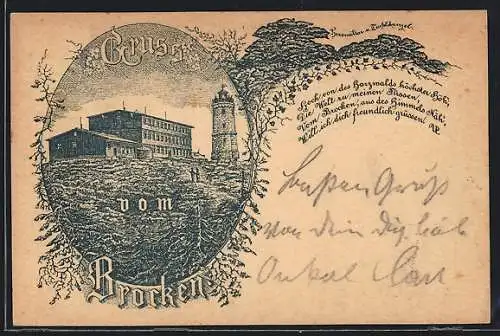 Gruss
vom
Brocken
Hexenaltar u. Teufelskanzel.
Hoch von des Harzwalds höchster Höh',
Die Welt zu meinen Füssen,
Vom Brocken, aus des Himmels Näh',
Will ich dich freundlich grüssen!
Besten Gruß
von dein dich lieb
Onkel Carl